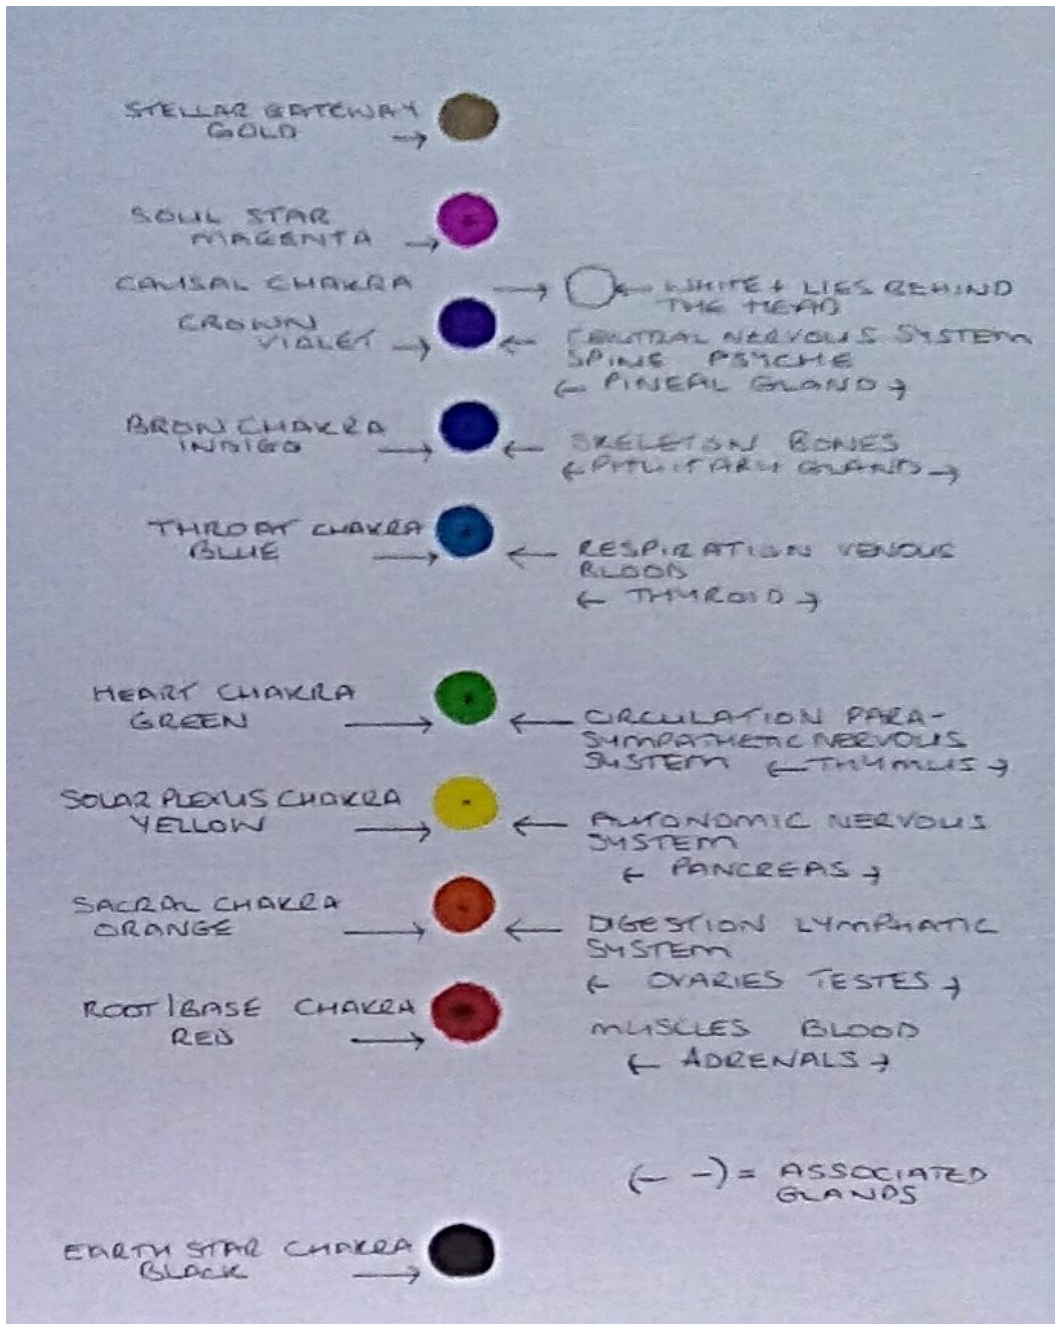 STELLAR GATEWAY
GOLD →
SOUL STAR
MAGENTA →
CAUSAL CHAKRA → ← WHITE + LIES BEHIND
THE HEAD
CROWN
VIOLET → ← CENTRAL NERVOUS SYSTEM
SPINE PSYCHE
← PINEAL GLAND →
BROW CHAKRA
INDIGO → ← SKELETON BONES
← PITUITARY GLAND →
THROAT CHAKRA
BLUE → ← RESPIRATION VENOUS
BLOOD
← THYROID →
HEART CHAKRA
GREEN → ← CIRCULATION PARA-
SYMPATHETIC NERVOUS
SYSTEM ← THYMUS →
SOLAR PLEXUS CHAKRA
YELLOW → ← AUTONOMIC NERVOUS
SYSTEM
← PANCREAS →
SACRAL CHAKRA
ORANGE → ← DIGESTION LYMPHATIC
SYSTEM
← OVARIES TESTES →
ROOT/BASE CHAKRA
RED → MUSCLES BLOOD
← ADRENALS →
(← →) = ASSOCIATED
GLANDS
EARTH STAR CHAKRA
BLACK →